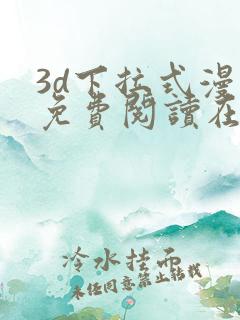 3d下拉式漫
免費閱讀在
冷水挂面
未经同意禁止转载